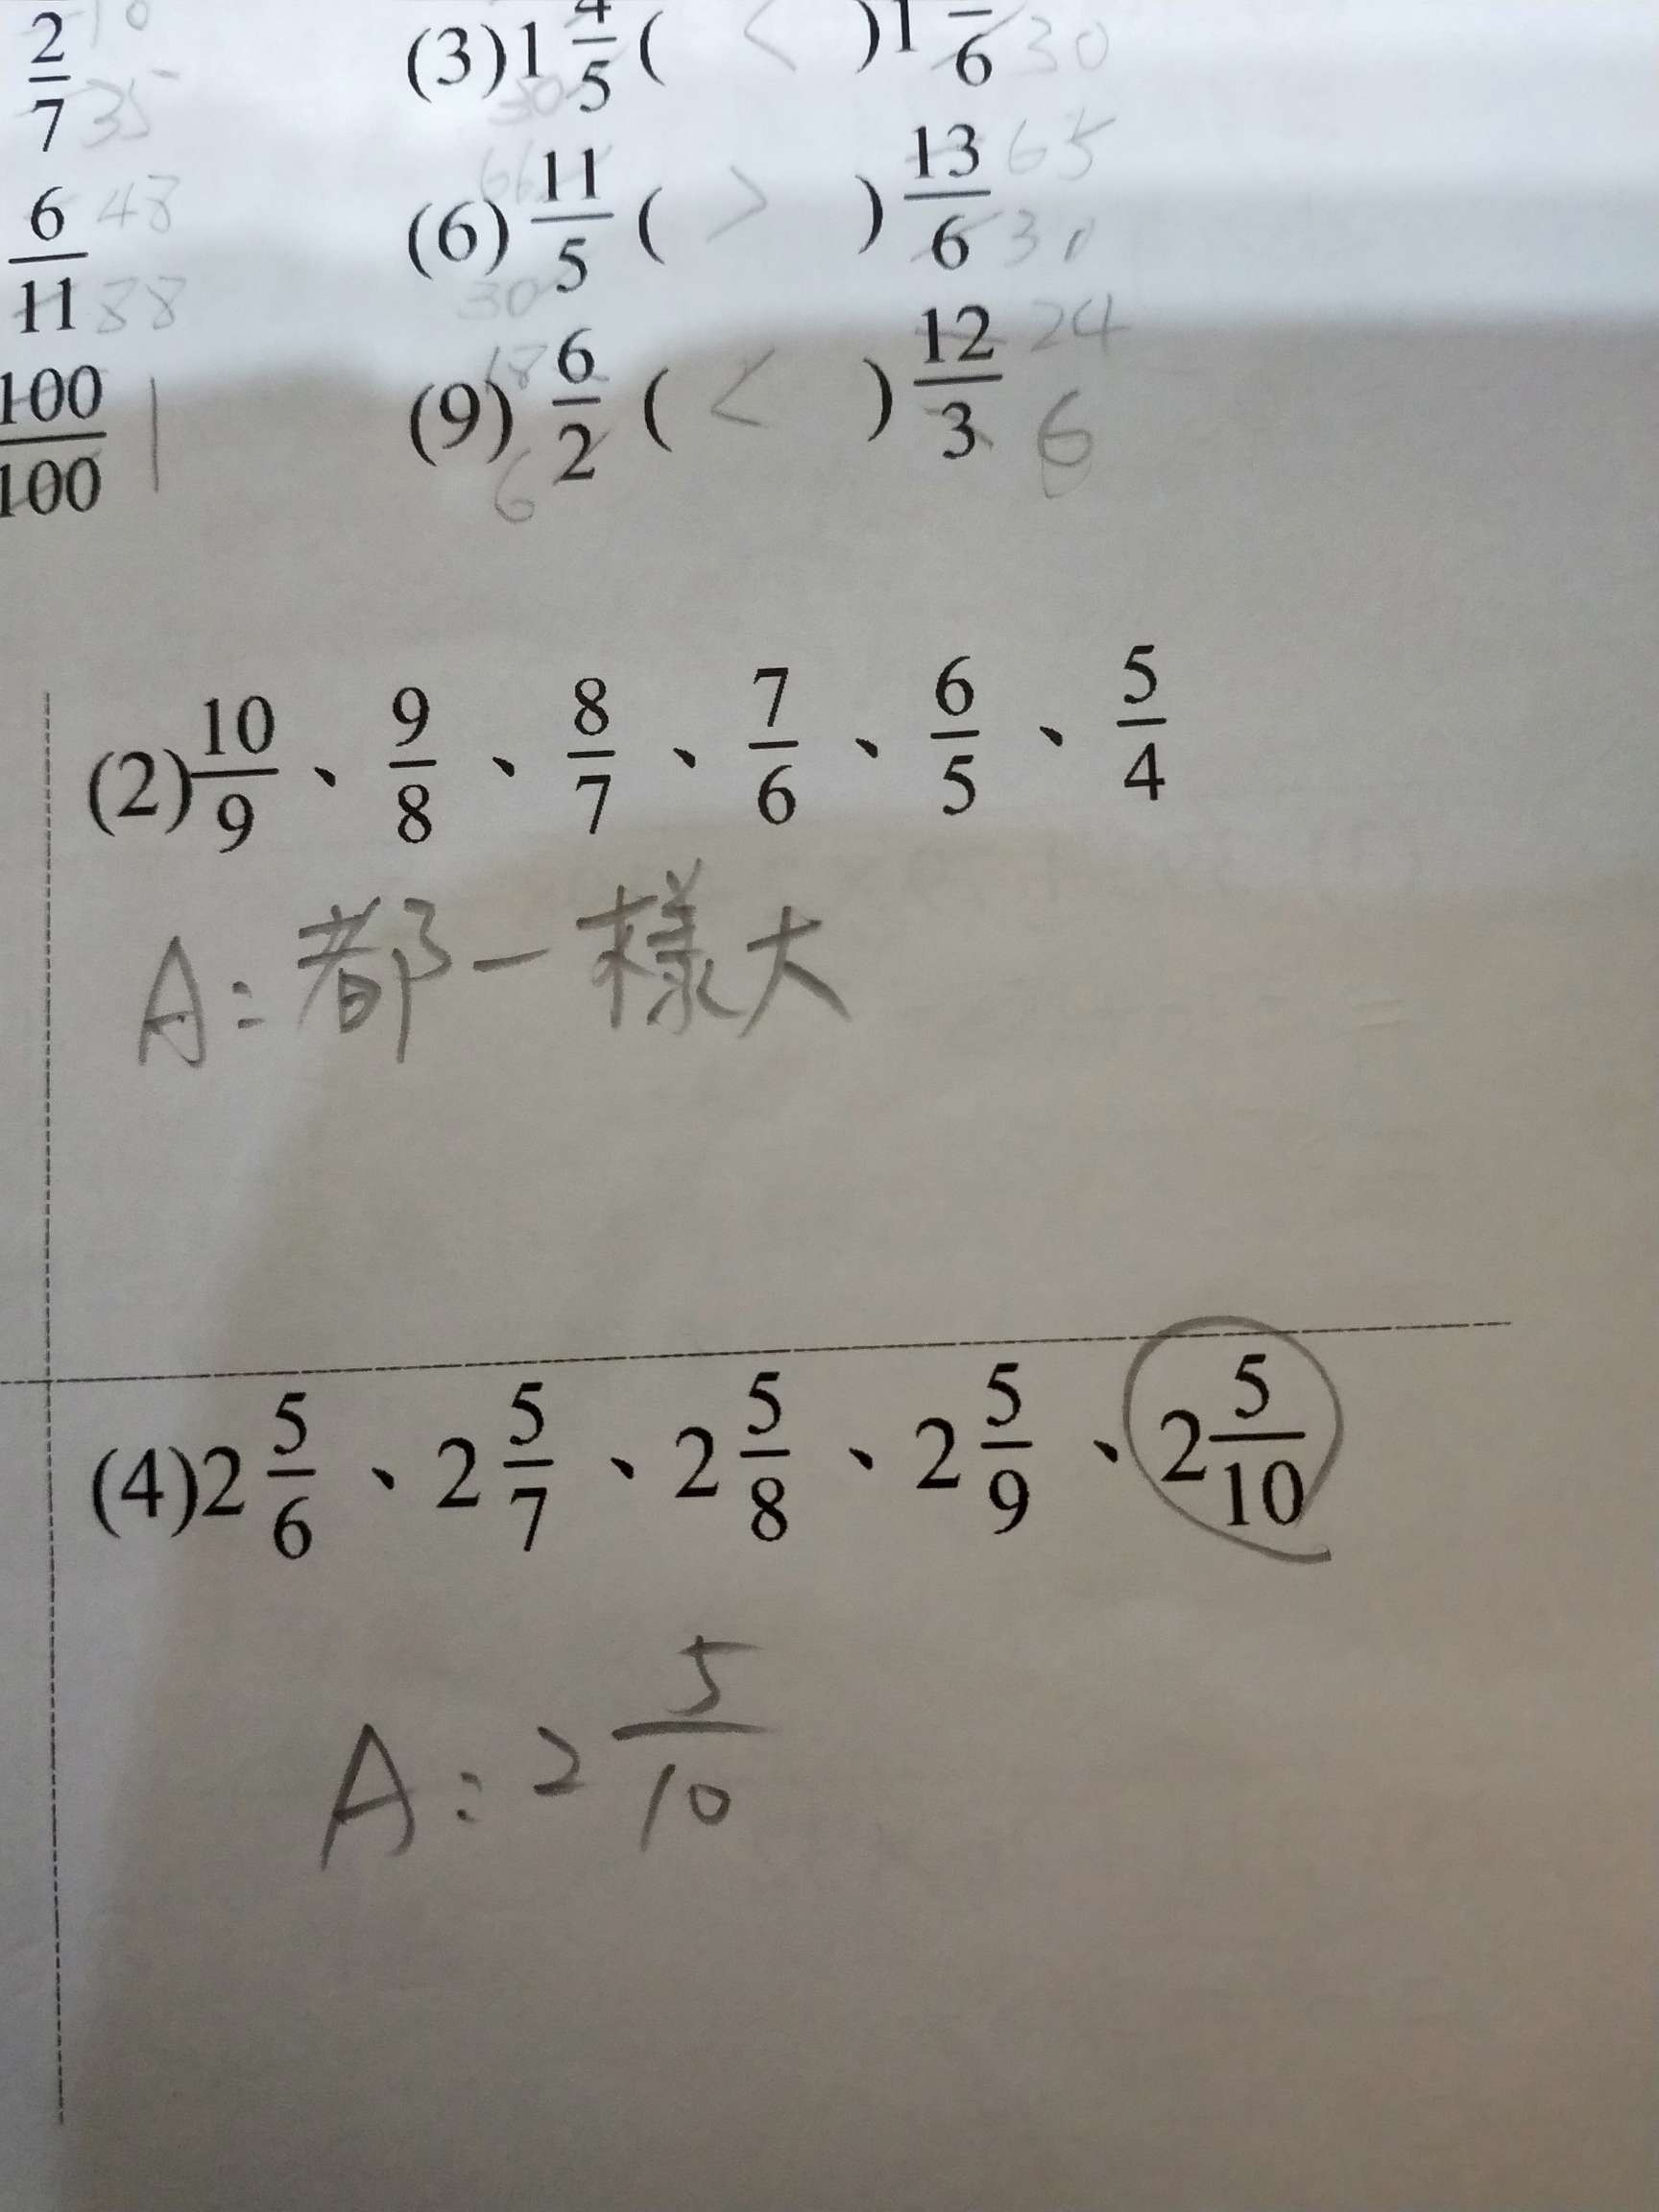 2/7 10 35 (3) 1 4/5 ( < ) 1 /6 30 30
6/11 48 88 (6) 66 11/5 30 ( > ) 13/6 65 30
100/100 1 (9) 18 6/2 6 ( < ) 12/3 24 6
(2) 10/9、9/8、8/7、7/6、6/5、5/4
A:都一樣大
(4) 2 5/6、2 5/7、2 5/8、2 5/9、2 5/10
A:2 5/10